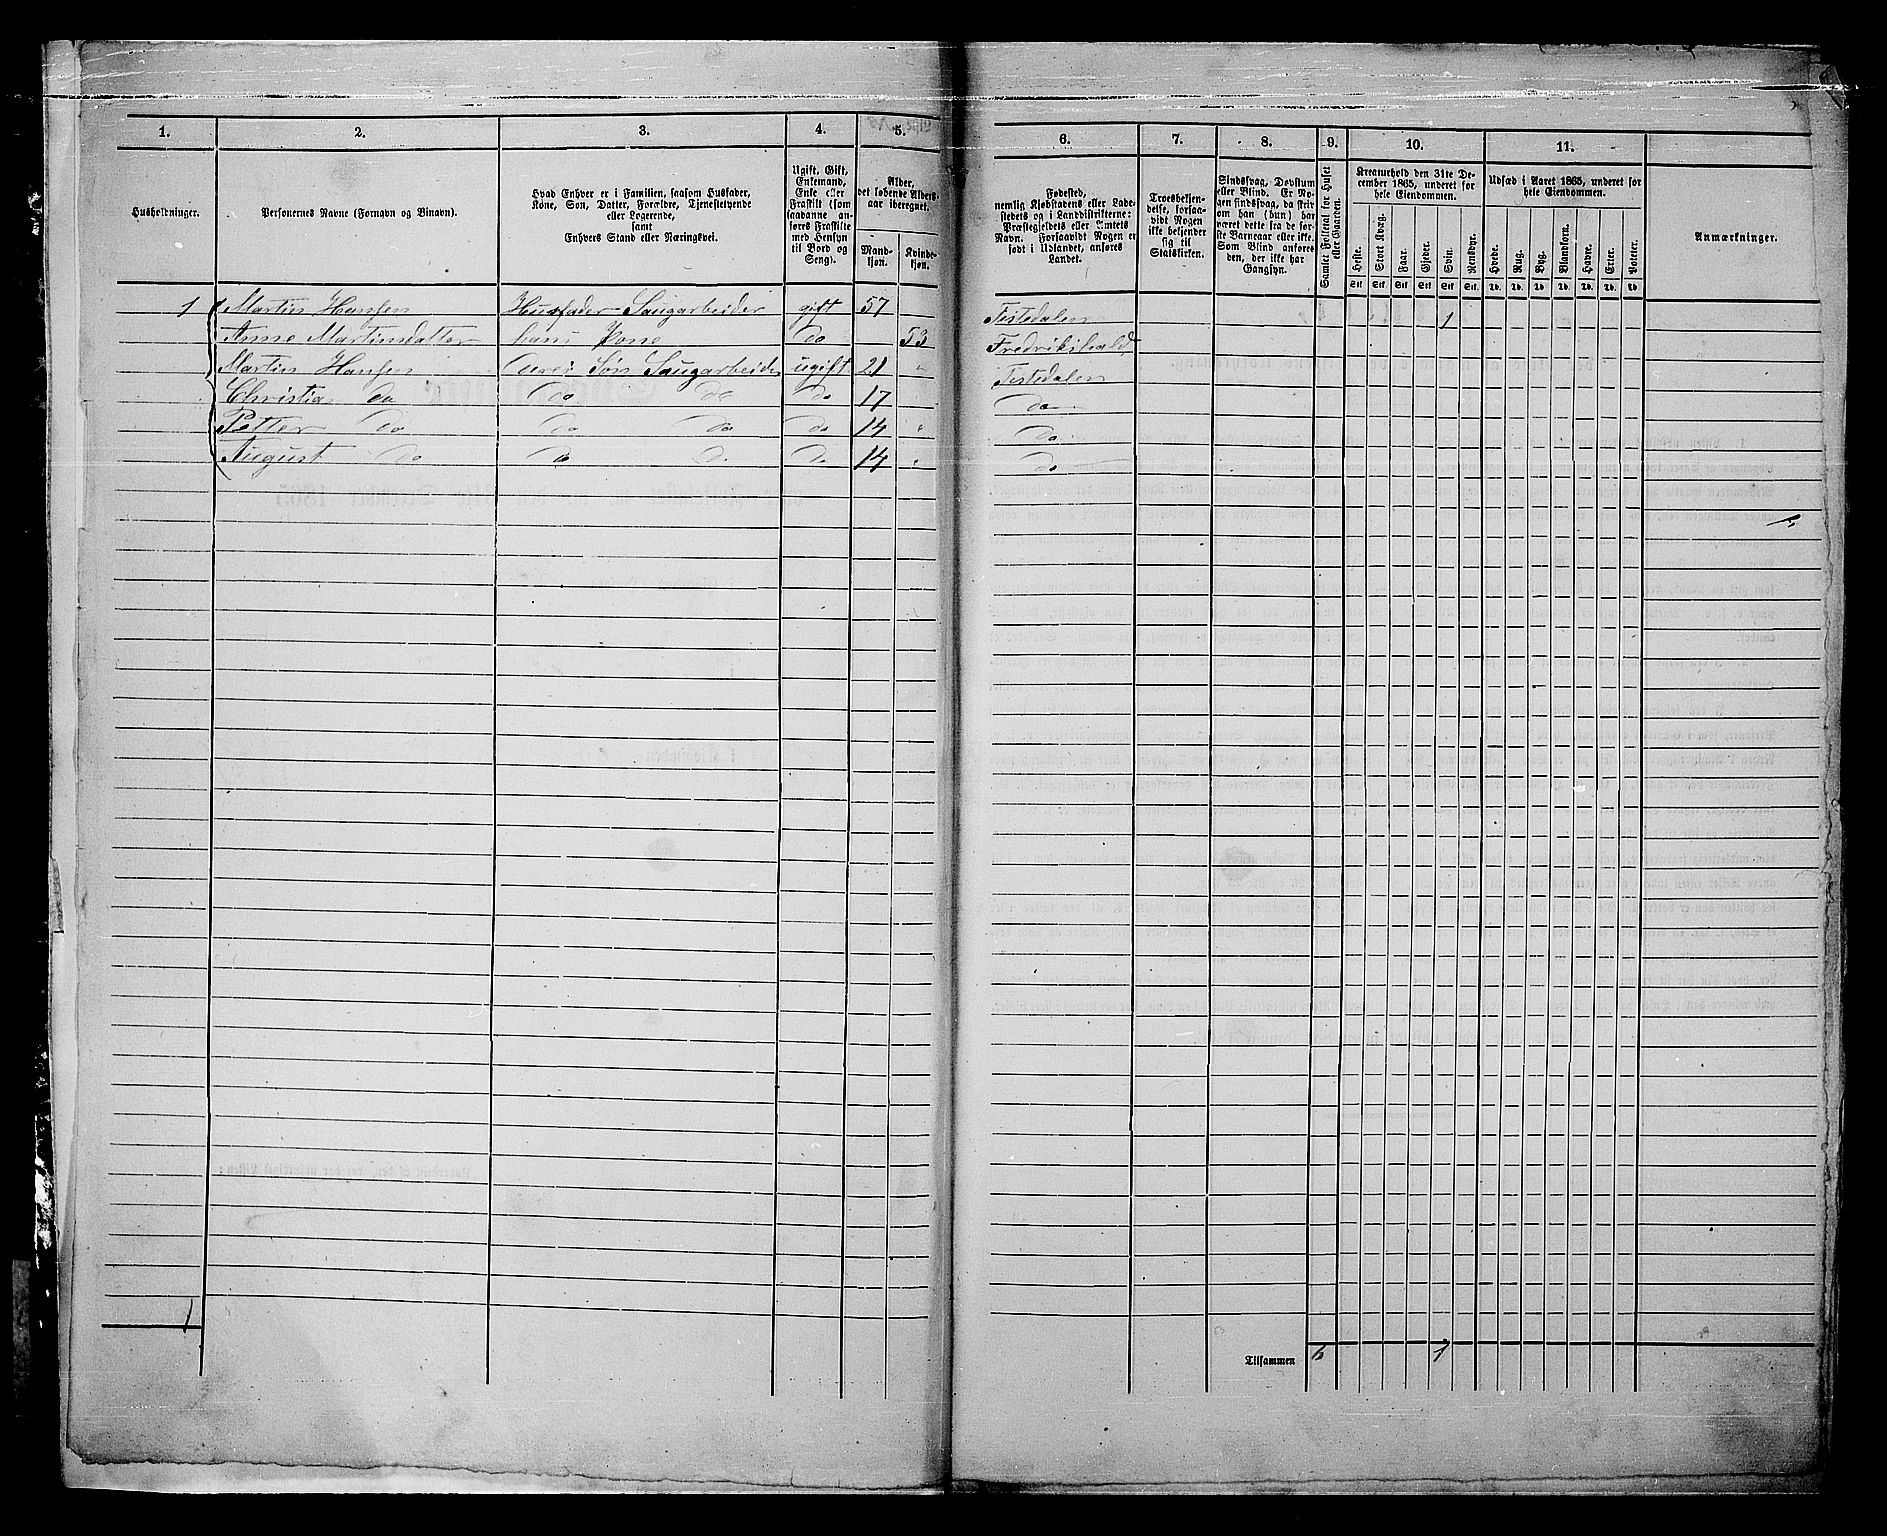 1.
2.
3.
4.
5.
6.
7.
8.
9.
10.
11.
Husholdninger.
Personernes Navne (Fornavn og Binavn).
Hvad Enhver er i Familien, saasom Husfader,
Kone, Søn, Datter, Forældre, Tjenestetyende
eller Logerende,
samt
Enhvers Stand eller Næringsvei.
Ugift, Gift,
Enkemand,
Enke eller
Fraskilt (som
saadanne an-
føres Fraskilte
med Hensyn
til Bord og
Seng).
Alder,
det løbende Alders-
aar iberegnet.
Mand-
kjøn.
Kvinde-
kjøn.
Fødested,
nemlig Kjøbstadens eller Lade-
stedets og i Landdistrikterne:
Præstegjeldets eller Amtets
Navn. Forsaavidt Nogen er
født i Udlandet, anføres
Landet.
Troesbekjen-
delse, forsaa-
vidt Nogen
ikke bekjender
sig til
Statskirken.
Sindssvag, Døvstum
eller Blind. Er No-
gen sindssvag, da skriv
om han (hun) har
været dette fra de før-
ste Barneaar eller ikke.
Som Blind anføres
den, der ikke har
Gangsyn.
Samlet Folketal for Huset
eller Gaarden.
Kreaturhold den 31te De-
cember 1865, underet for
hele Eiendommen.
Heste.
Stort Kvæg.
Faar.
Gjeder.
Svin.
Rensdyr.
Stk Stk Stk Stk Stk Stk.
Udsæd i Aaret 1865, underet for
hele Eiendommen.
Hvede.
Rug.
Byg.
Blandkorn.
Havre.
Erter.
Poteter.
Td. Td. Td. Td. Td. Td. Td
Anmærkninger.
1 Martin Hansen Husfader Saugarbeider gift 57 Tistedalen 1
Anne Martinsdatter hans Kone do 53 Fredrikshald
Martin Hansen deres Søn Saugarbeider ugift 21 " Tistedalen
Christia do do do do 17 do
Petter do do do do 14 " do
August do do do do 14 " do
1
Tilsammen 6 1